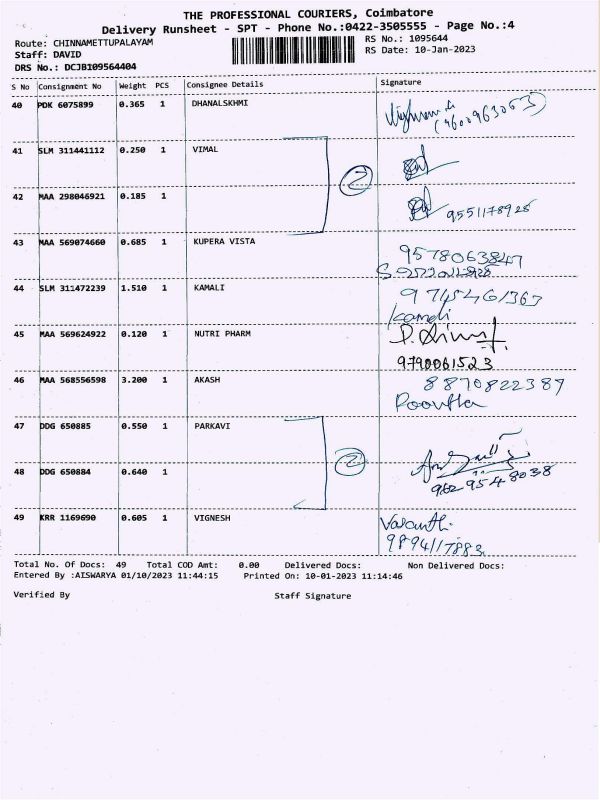 THE PROFESSIONAL COURIERS, Coimbatore
Delivery Runsheet - SPT - Phone No.:0422-3505555 - Page No.:4
Route: CHINNAMETTUPALAYAM RS No.: 1095644
Staff: DAVID RS Date: 10-Jan-2023
DRS No.: DCJB109564404
S No Consignment No Weight PCS Consignee Details Signature
40 PDK 6075899 0.365 1 DHANALSKHMI
(9600963063)
41 SLM 311441112 0.250 1 VIMAL
2
42 MAA 298046921 0.185 1
9551178925
43 MAA 569074660 0.685 1 KUPERA VISTA
9578063847
44 SLM 311472239 1.510 1 KAMALI
9715461367
Kamali
45 MAA 569624922 0.120 1 NUTRI PHARM
9790061523
46 MAA 568556598 3.200 1 AKASH 8870822387
47 DDG 650885 0.550 1 PARKAVI
2
48 DDG 650884 0.640 1
9629548038
49 KRR 1169690 0.605 1 VIGNESH Vasanthi
9894117883
Total No. Of Docs: 49 Total COD Amt: 0.00 Delivered Docs: Non Delivered Docs:
Entered By :AISWARYA 01/10/2023 11:44:15 Printed On: 10-01-2023 11:14:46
Verified By Staff Signature